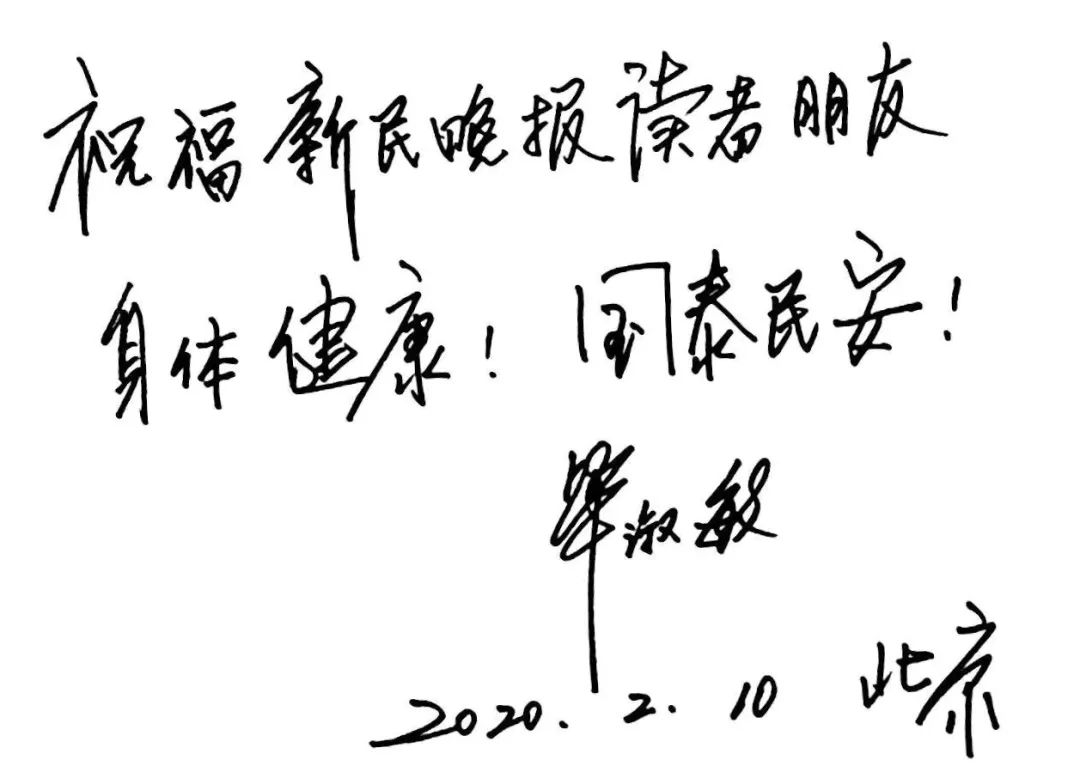 祝福新民晚报读者朋友
身体健康！国泰民安！
毕淑敏
2020.2.10 北京